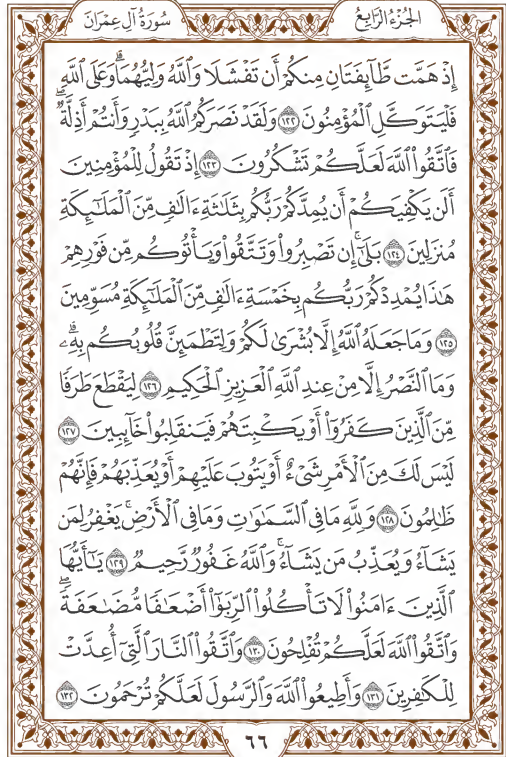 الجُزْءُ الرَّابِعُ
سُورَةُ آلِ عِمْرَانَ
إِذْ هَمَّت طَّآئِفَتَانِ مِنكُمْ أَن تَفْشَلَا وَٱللَّهُ وَلِيُّهُمَاۗ وَعَلَى ٱللَّهِ
فَلْيَتَوَكَّلِ ٱلْمُؤْمِنُونَ ١٢٢ وَلَقَدْ نَصَرَكُمُ ٱللَّهُ بِبَدْرٍ وَأَنتُمْ أَذِلَّةٌۖ
فَٱتَّقُوا۟ ٱللَّهَ لَعَلَّكُمْ تَشْكُرُونَ ١٢٣ إِذْ تَقُولُ لِلْمُؤْمِنِينَ
أَلَن يَكْفِيَكُمْ أَن يُمِدَّكُمْ رَبُّكُم بِثَلَـٰثَةِ ءَالَـٰفٍ مِّنَ ٱلْمَلَـٰٓئِكَةِ
مُنزَلِينَ ١٢٤ بَلَىٰٓۚ إِن تَصْبِرُوا۟ وَتَتَّقُوا۟ وَيَأْتُوكُم مِّن فَوْرِهِمْ
هَـٰذَا يُمْدِدْكُمْ رَبُّكُم بِخَمْسَةِ ءَالَـٰفٍ مِّنَ ٱلْمَلَـٰٓئِكَةِ مُسَوِّمِينَ
١٢٥ وَمَا جَعَلَهُ ٱللَّهُ إِلَّا بُشْرَىٰ لَكُمْ وَلِتَطْمَئِنَّ قُلُوبُكُم بِهِۦۗ
وَمَا ٱلنَّصْرُ إِلَّا مِنْ عِندِ ٱللَّهِ ٱلْعَزِيزِ ٱلْحَكِيمِ ١٢٦ لِيَقْطَعَ طَرَفًا
مِّنَ ٱلَّذِينَ كَفَرُوٓا۟ أَوْ يَكْبِتَهُمْ فَيَنقَلِبُوا۟ خَآئِبِينَ ١٢٧
لَيْسَ لَكَ مِنَ ٱلْأَمْرِ شَىْءٌ أَوْ يَتُوبَ عَلَيْهِمْ أَوْ يُعَذِّبَهُمْ فَإِنَّهُمْ
ظَـٰلِمُونَ ١٢٨ وَلِلَّهِ مَا فِى ٱلسَّمَـٰوَٰتِ وَمَا فِى ٱلْأَرْضِۚ يَغْفِرُ لِمَن
يَشَآءُ وَيُعَذِّبُ مَن يَشَآءُۚ وَٱللَّهُ غَفُورٌ رَّحِيمٌ ١٢٩ يَـٰٓأَيُّهَا
ٱلَّذِينَ ءَامَنُوا۟ لَا تَأْكُلُوا۟ ٱلرِّبَوٰٓا۟ أَضْعَـٰفًا مُّضَـٰعَفَةًۖ
وَٱتَّقُوا۟ ٱللَّهَ لَعَلَّكُمْ تُفْلِحُونَ ١٣٠ وَٱتَّقُوا۟ ٱلنَّارَ ٱلَّتِىٓ أُعِدَّتْ
لِلْكَـٰفِرِينَ ١٣١ وَأَطِيعُوا۟ ٱللَّهَ وَٱلرَّسُولَ لَعَلَّكُمْ تُرْحَمُونَ ١٣٢
٦٦